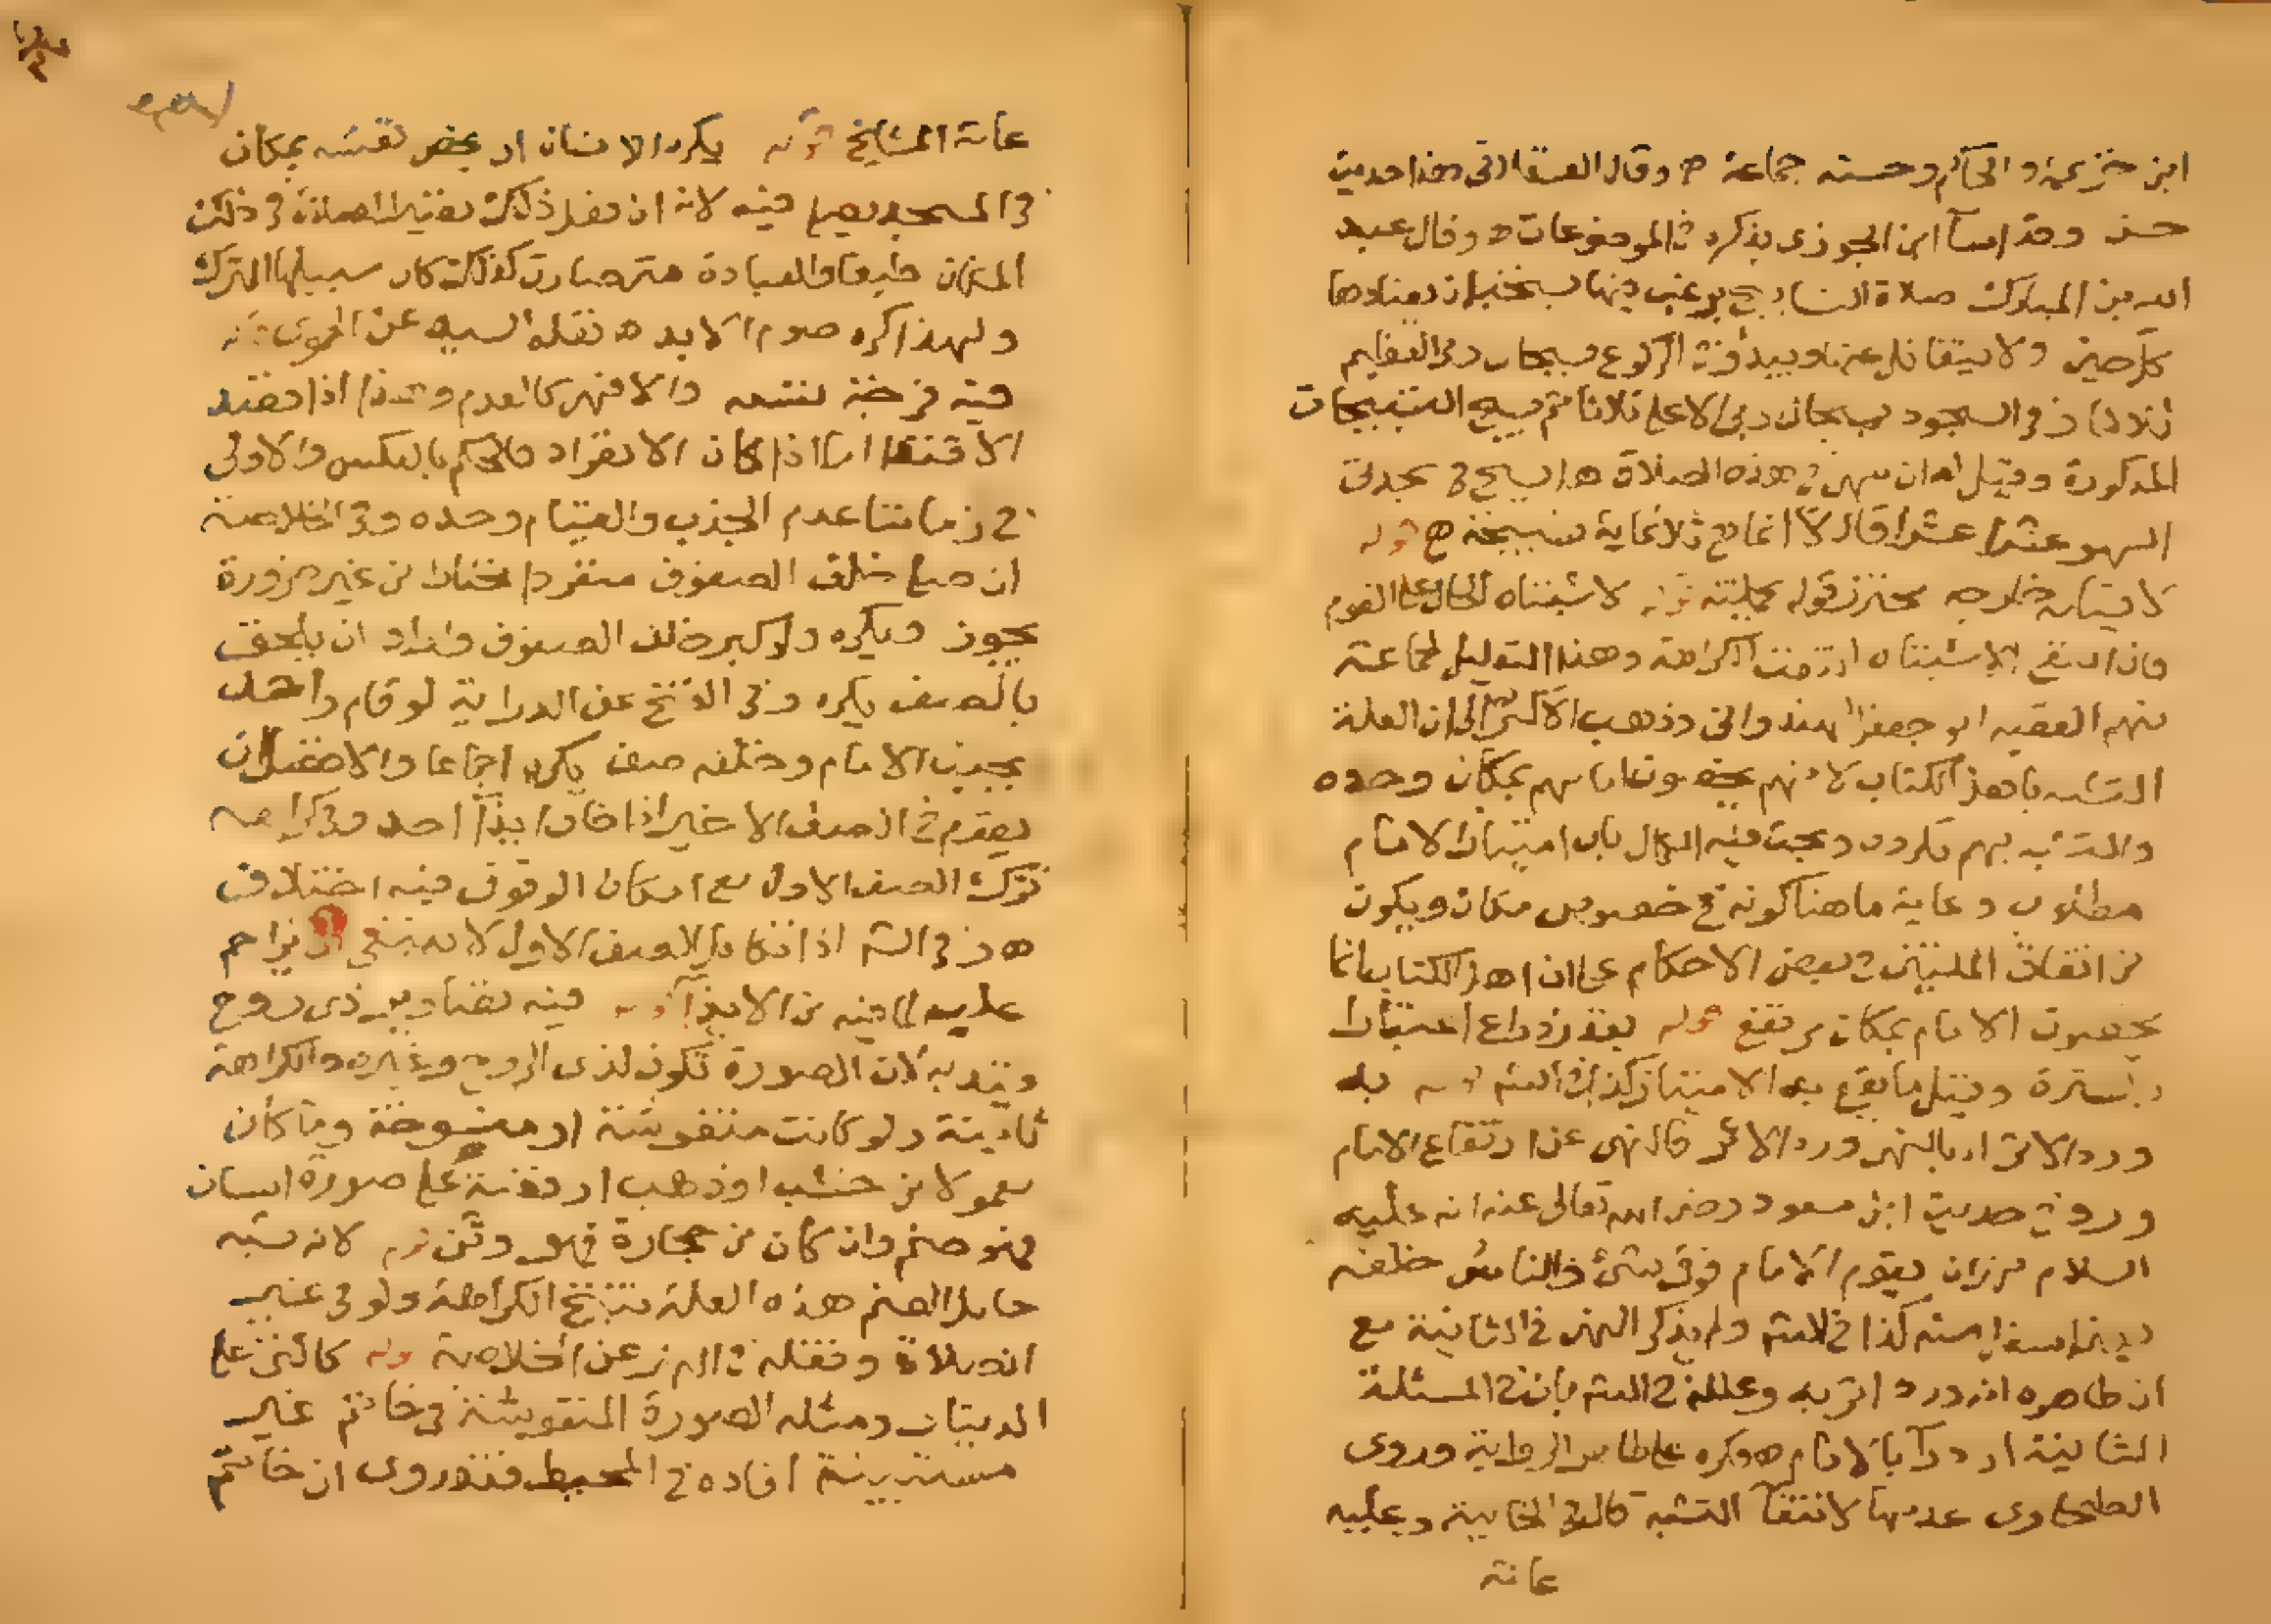 ابن خزيمة والحاكم وحسنه جماعة ه وقال العسقلاني هذا حديث
حسن وقد اساء ابن الجوزي بذكره في الموضوعات ه وقال عبد
الله بن المبارك صلاة التسابيح يرغب فيها يستحب ان يعتادها
كل حين ولا يتغافل عنها ويبدأ في الركوع بسبحان ربي العظيم
ثلاثا وفي السجود بسبحان ربي الاعلى ثلاثا ثم يسبح التسبيحات
المذكورة وقيل له ان سهى في هذه الصلاة هل يسبح في سجدتي
السهو عشرا عشرا قال لا انما هي ثلاثماية تسبيحة ه قوله
لا قيامه خارجه محترز قوله بجملته قوله لاشتباه الحال على القوم
فان انتفى الاشتباه انتفت الكراهة وهذا التعليل لجماعة
منهم الفقيه ابو جعفر الهندواني وذهب الاكثر الى ان العلة
التشبه باهل الكتاب لانهم يخصون امامهم بمكان وحده
والتشبه بهم مكروه وبحث فيه الكمال بان امتياز الامام
مطلوب وغاية ما هنا كونه في خصوص مكان ويكون
من اتفاق الملتين في بعض الاحكام على ان اهل الكتاب انما
يخصون الامام بمكان مرتفع قوله بقدر ذراع اعتبارا
بالسترة وقيل ما يقع به الامتياز كذا في الشم قوله به
ورد الاثر اي بالنهي ورد الاثر كالنهي عن ارتفاع الامام
ورد في حديث ابن مسعود رضي الله تعالى عنه انه عليه
السلام نهى ان يقوم الامام فوق شئ والناس خلفه
يعني اسفل منه كذا في الشم ولم يذكر النهي في الثانية مع
ان ظاهره انه ورد اثر به وعلله في الشم بان في المسئلة
الثانية ازدراء بالامام ه وكره على ظاهر الرواية وروى
الطحاوي عدمها لانتفاء التشبه كما في الخانية وعليه
عامة
عامة المشايخ قوله يكره الانسان ان يخص نفسه بمكان
في المسجد يصلي فيه لانه ان فعل ذلك تصير الصلاة في ذلك
المكان طبعا والعبادة متى صارت كذلك كان سبيلها الترك
ولهذا كره صوم الابد ه نقله السيد عن الحموي قوله
فيه فرجة تسعه والا فهي كالعدم وهذا اذا قصد
الاقتدا اما اذا كان الانفراد فالحكم بالعكس والاولى
في زماننا عدم الجذب والقيام وحده وفي الخلاصة
ان صلى خلف الصفوف منفردا مختارا من غير ضرورة
يجوز ويكره ولو كبر خلف الصفوف واراد ان يلحق
بالصف يكره وفي الفتح عن الدراية لو قام واحد
بجنب الامام وخلفه صف يكره اجماعا والافضل ان
يقوم في الصف الاخير اذا خاف ايذاء احد وفي كراهة
ترك الصف الاول مع امكان الوقوف فيه اختلاف
ه وفي الشم اذا تكامل الصف الاول لا ينبغي ان يزاحم
عليه لما فيه من الايذاء قوله فيه تصاوير ذي روح
وقيد به لان الصورة تكون لذي الروح وغيره والكراهة
ثابتة ولو كانت منقوشة او منسوخة وما كان
معمولا من خشب او ذهب او فضة على صورة انسان
فهو صنم وان كان من حجارة فهو وثن قوله لانه يشبه
حامل الصنم هذه العلة تنتج الكراهة ولو في غير
الصلاة ونقله في النهر عن الخلاصة قوله كالتي على
الدينار ومثله الصورة المنقوشة في خاتم غير
مستبينة افاده في المحيط فقد روى ان خاتم